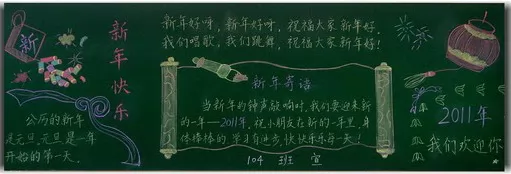 新
新年快乐
公历的新年
是元旦,元旦是一年
开始的第一天。
新年好呀,新年好呀,祝福大家新年好。
我们唱歌,我们跳舞,祝福大家新年好!
新年寄语
当新年的钟声敲响时,我们要迎来新
的一年——2011年,祝小朋友在新的一年里,身
体棒棒的 学习有进步,快快乐乐每一天!
104 班 宣
2011年
我们欢迎你